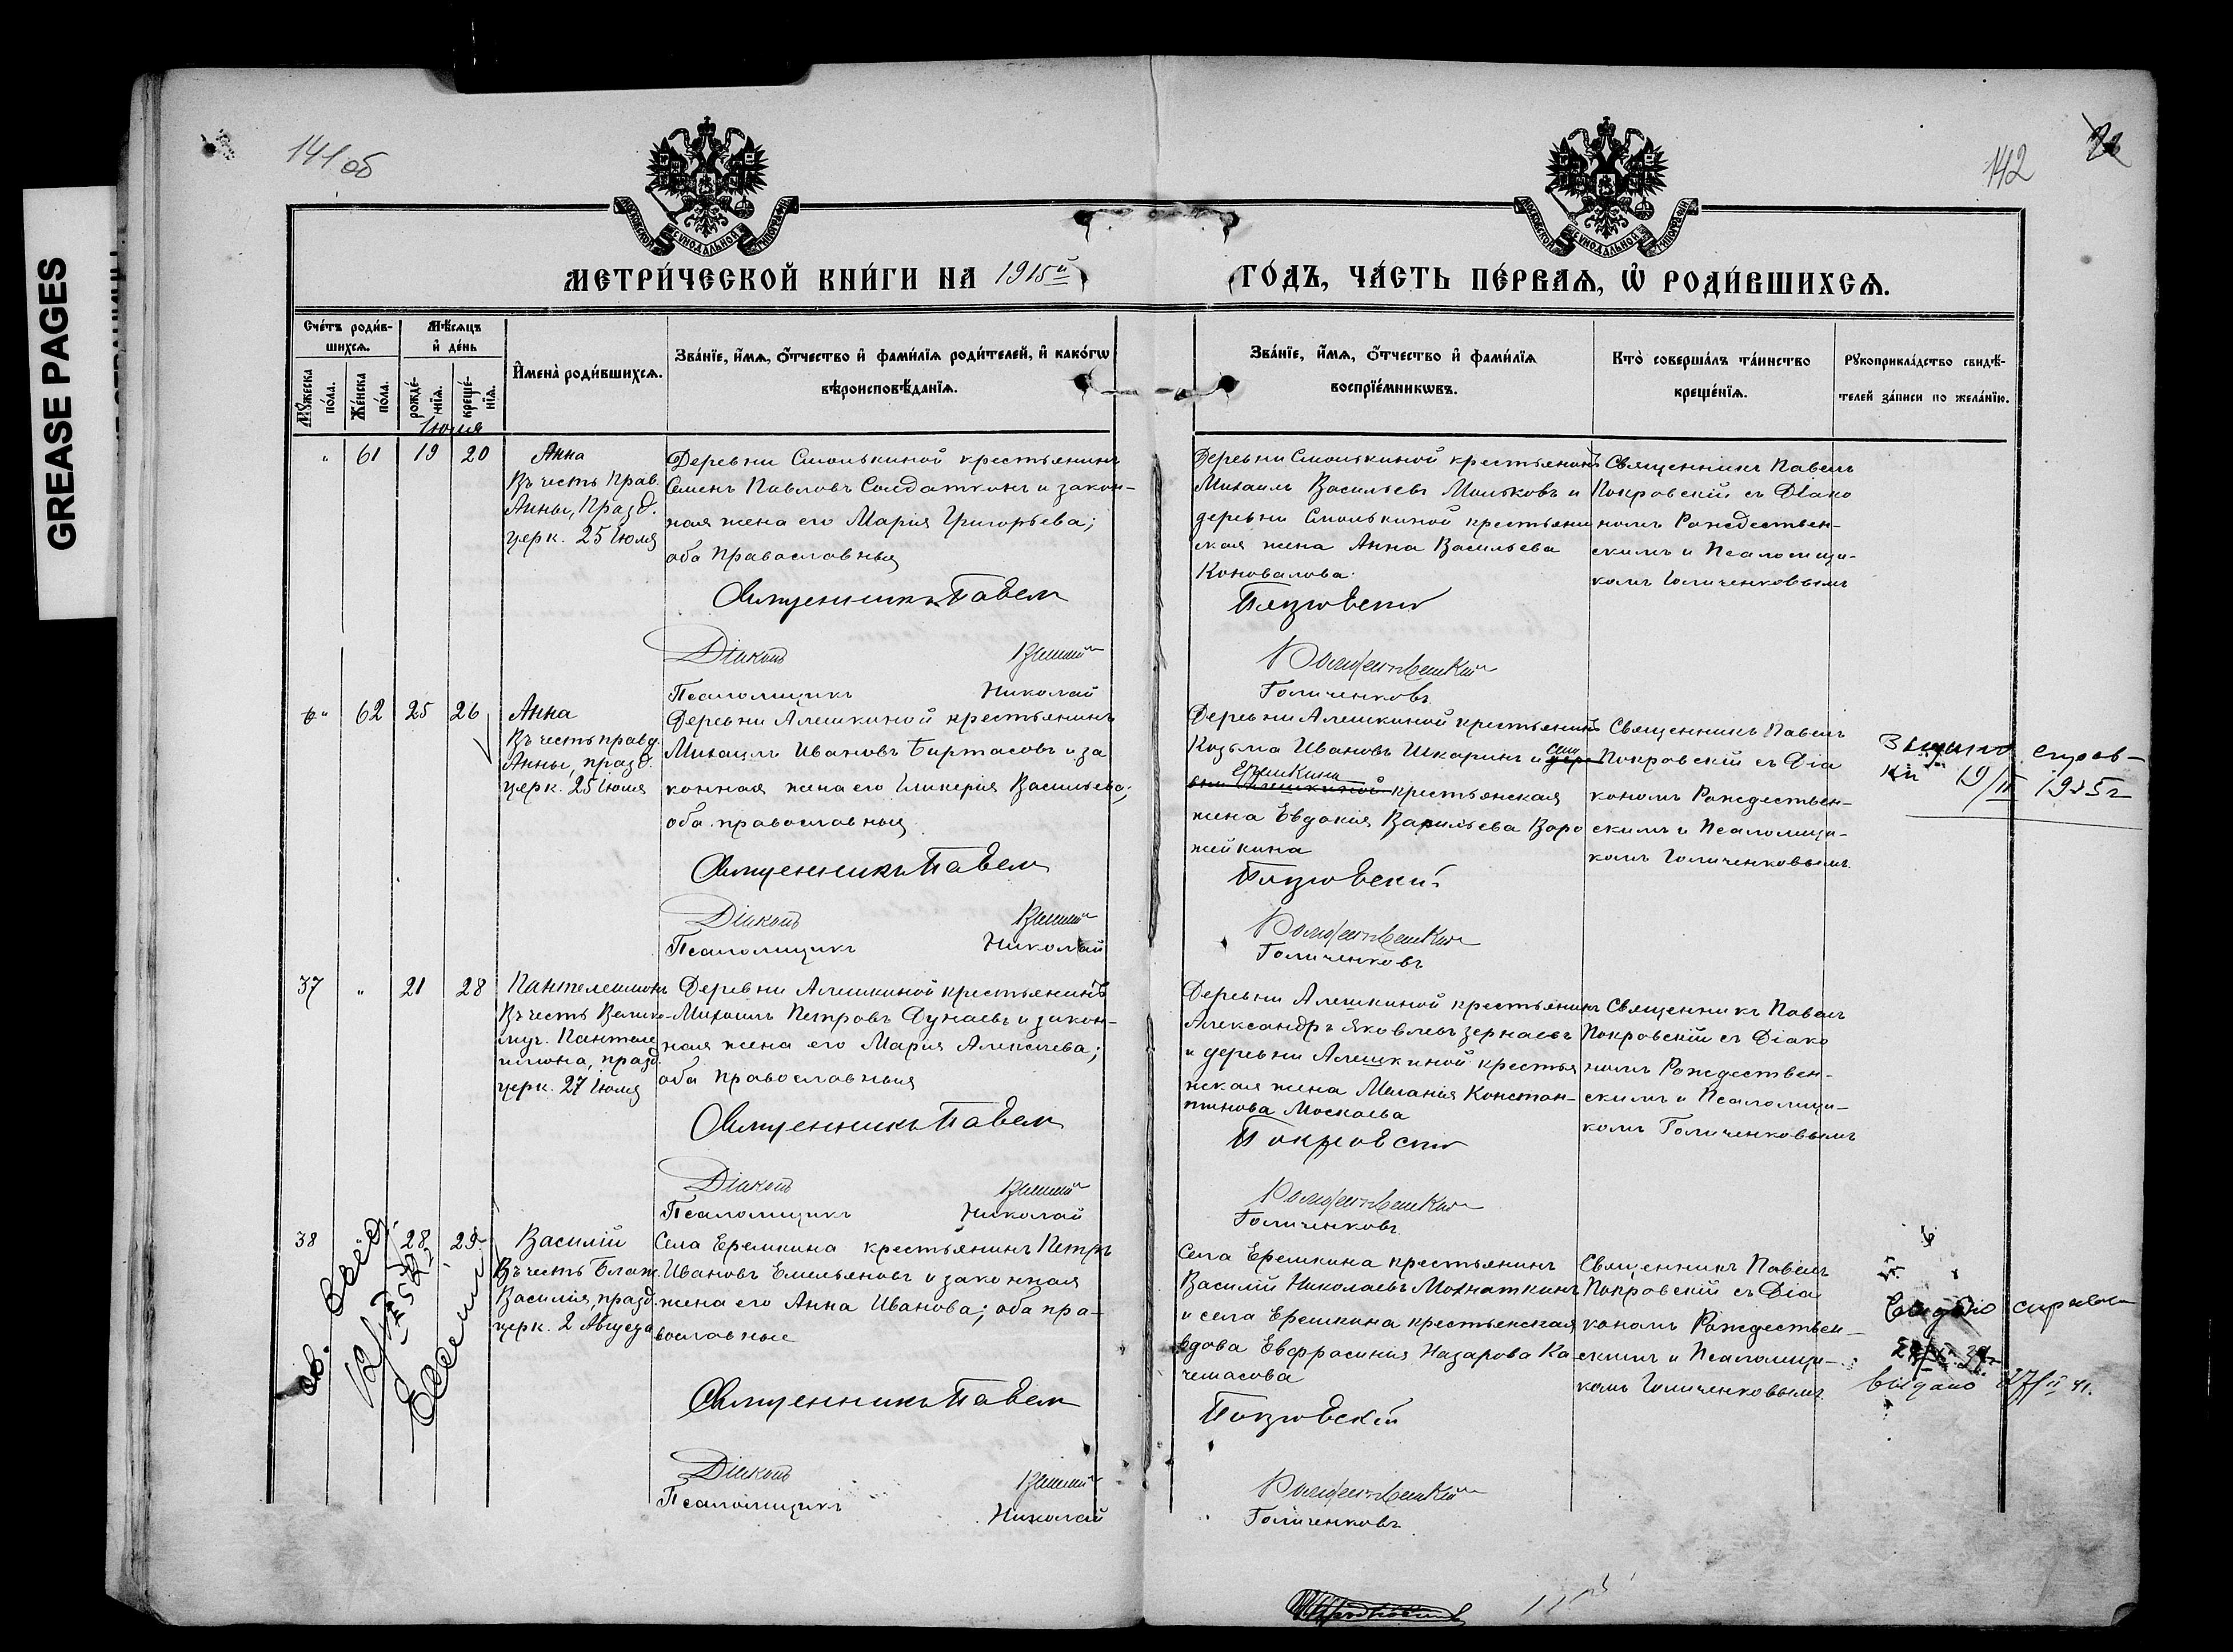 GREASE PAGES
141 об
142
МОСКОВСКОЙ СѴНОДАЛЬНОЙ ТИПОГРАФІИ
МОСКОВСКОЙ СѴНОДАЛЬНОЙ ТИПОГРАФІИ
МЕТРИ́ЧЕСКОЙ КНИ́ГИ НА 1915й
ГО́ДЪ, ЧА́СТЬ ПЕ́РВАѦ, Ѡ҆ РОДИ́ВШИХСѦ.
Сче́тъ роди́в-
шихсѧ.
Мѣ́сѧцъ
и҆ де́нь
Мꙋ́жеска
по́ла.
Же́нска
по́ла.
рожде́-
нїѧ.
креще́-
нїѧ.
И҆мена̀ роди́вшихсѧ.
Зва́нїе, и҆́мѧ, ѻ҆́тчество и҆ фами́лїѧ роди́телей, и҆ како́гѡ
вѣроисповѣ́данїѧ.
Зва́нїе, и҆́мѧ, ѻ҆́тчество и҆ фами́лїѧ
воспрїе́мникѡвъ.
Кто̀ соверша́лъ та́инство
креще́нїѧ.
Рꙋкоприкла́дство свидѣ́-
телей за́писи по жела́нїю.
Іюля
" 61 19 20
Анна
Въ честь Прав.
Анны, Празд.
церк. 25 Іюля
Деревни Смолькиной крестьянинъ
Семенъ Павловъ Солдаткинъ и закон-
ная жена его Марія Григорьева;
оба православныя
Священникъ Павелъ
Діаконъ
Псаломщикъ Николай
Деревни Смолькиной крестьянинъ
Михаилъ Васильевъ Мольковъ и
деревни Смолькиной крестьян
ская жена Анна Васильева
Коновалова.
Покровскій
Рождественскій
Голиченковъ
Священникъ Павелъ
Покровскій съ Діако
номъ Рождествен-
скимъ и Псаломщи-
комъ Голиченковымъ
" 62 25 26
Анна
Въ честь правд.
Анны, празд.
церк. 25 Іюля
Деревни Алешкиной крестьянинъ
Михаилъ Ивановъ Биртасовъ и за
конная жена его Гликерія Васильева;
оба православныя
Священникъ Павелъ
Діаконъ
Псаломщикъ Николай
Деревни Алешкиной крестьянинъ
Козьма Ивановъ Шкаринъ и села
Еремкина крестьянская
жена Евдокія Васильева Воро
жейкина
Покровскій
Рождественскій
Голиченковъ
Священникъ Павелъ
Покровскій съ Діа
кономъ Рождествен-
скимъ и Псаломщи-
комъ Голиченковымъ
справ-
ки 19/II 1935г
37 " 21 28
Пантелеимонъ
Въ честь Велико-
муч. Пантеле
имона, празд.
церк. 27 Іюля
Деревни Алешкиной крестьянинъ
Михаилъ Петровъ Дунаевъ и закон-
ная жена его Марія Алексѣева;
оба православныя
Священникъ Павелъ
Діаконъ
Псаломщикъ Николай
Деревни Алешкиной крестьянинъ
Александръ Яковлевъ Зернаевъ
и деревни Алешкиной крестья
нская жена Меланія Констан-
тинова Москаева
Покровскій
Рождественскій
Голиченковъ
Священникъ Павелъ
Покровскій съ Діако
номъ Рождествен-
скимъ и Псаломщи-
комъ Голиченковымъ
38 28 29
Василій
Въ честь Блаж.
Василія, празд.
церк. 2 Августа
Села Еремкина крестьянинъ Петръ
Ивановъ Емельяновъ и законная
жена его Анна Иванова; оба пра-
вославные
Священникъ Павелъ
Діаконъ
Псаломщикъ Николай
Села Еремкина крестьянинъ
Василій Николаевъ Мохнаткинъ
и села Еремкина крестьянская
вдова Евфросинія Назарова Ка
чемасова
Покровскій
Рождественскій
Голиченковъ
Священникъ Павелъ
Покровскій съ Діа
кономъ Рождествен-
скимъ и Псаломщи-
комъ Голиченковымъ
Выдано справка
выдано 27/II 41.